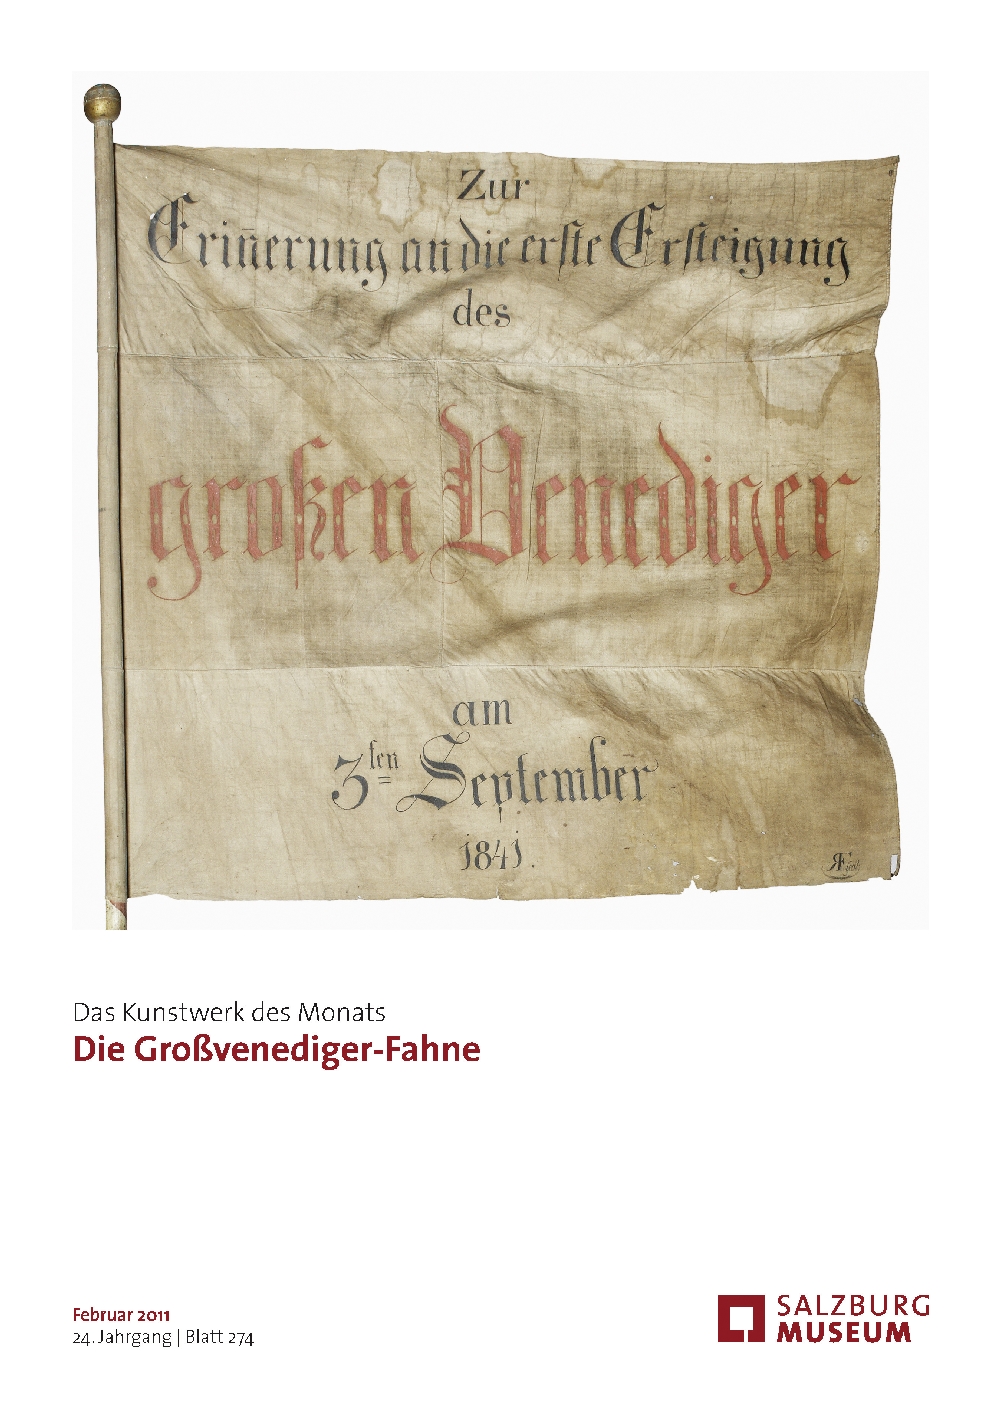 Zur
Erin̄erung an die erste Ersteigung
des
großen Venediger
am
3ten September
1841.
Das Kunstwerk des Monats
Die Großvenediger-Fahne
Februar 2011
24. Jahrgang | Blatt 274
SALZBURG
MUSEUM